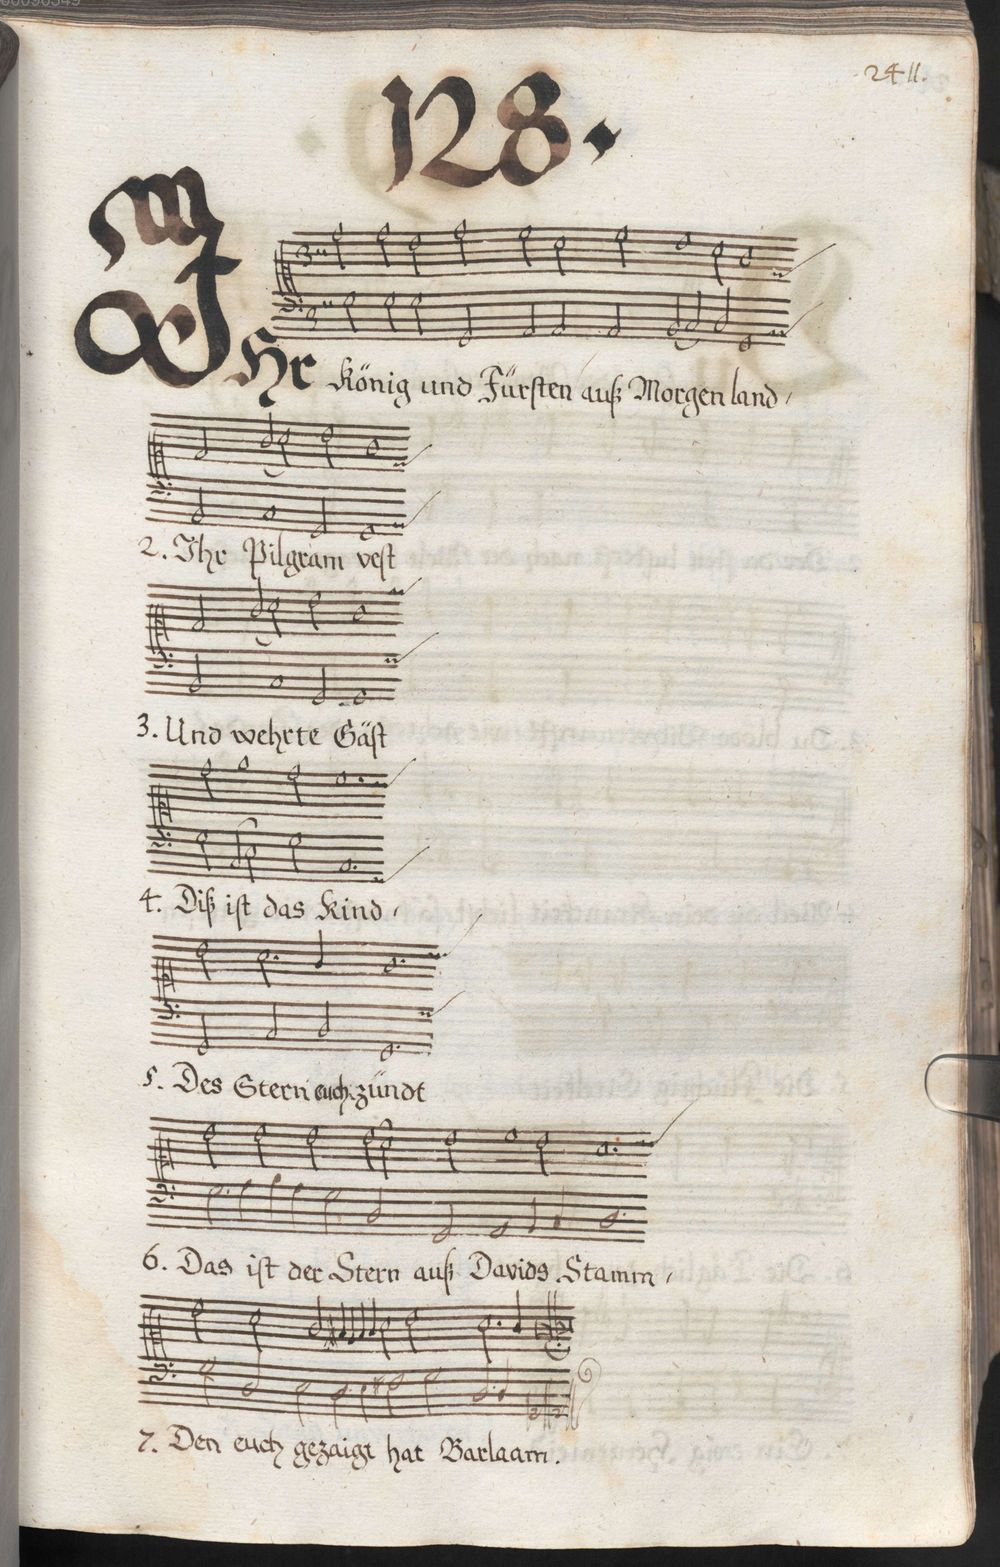 2411.
128.
IHr König und Fürsten auß Morgenland,
2. Ihr Pilgram vest
3. Und wehrte Gäst
4. Diß ist das Kind,
5. Des Stern euch zündt
6. Das ist der Stern auß Davids Stamm,
7. Den euch gezaigt hat Barlaam.